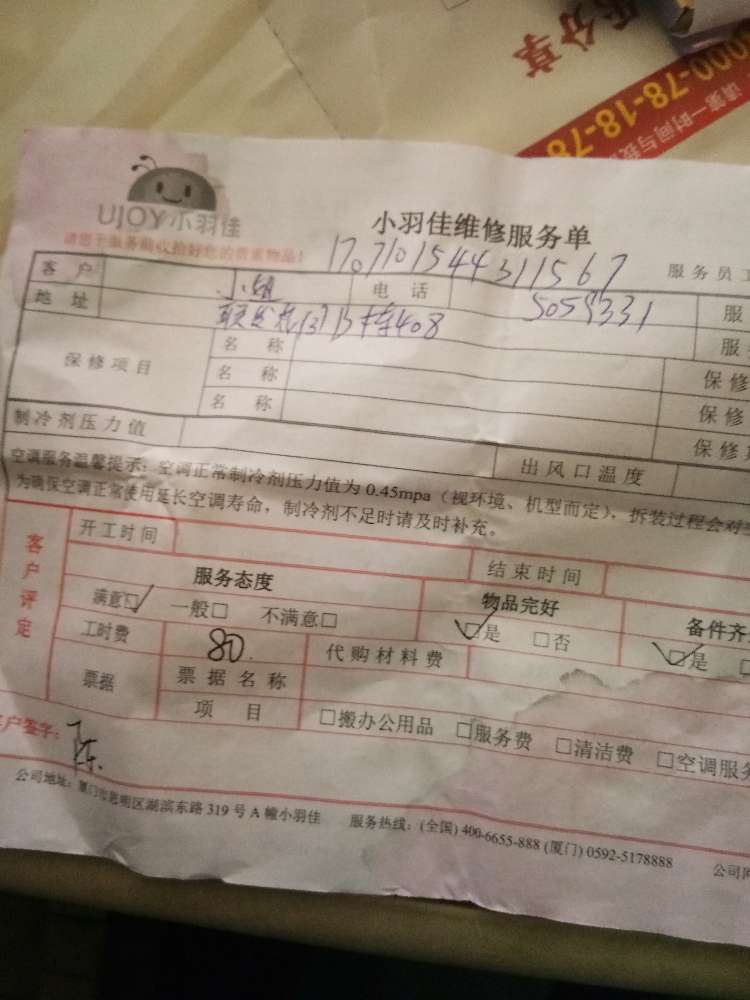 乐分享
000-78-18-78
请第一时间与我
UJOY小羽佳
小羽佳维修服务单
请您于服务前收拾好您的贵重物品!
1707101544311567
服务员工
客户 小姐 电话 5059331 服
地址 408 服
保修项目 名称 保修
名称 保修
名称 保修
制冷剂压力值 出风口温度
空调服务温馨提示:空调正常制冷剂压力值为 0.45mpa(视环境、机型而定),拆装过程会对
为确保空调正常使用延长空调寿命,制冷剂不足时请及时补充。
客户评定
开工时间 结束时间
服务态度 物品完好 备件齐
满意□ 一般□ 不满意□ □是 □否 □是
工时费 80 代购材料费
票据 票据名称
项目 □搬办公用品 □服务费 □清洁费 □空调服务
客户签字: 陈
公司地址:厦门市思明区湖滨东路 319 号 A 幢小羽佳 服务热线:(全国) 400-6655-888 (厦门) 0592-5178888 公司网